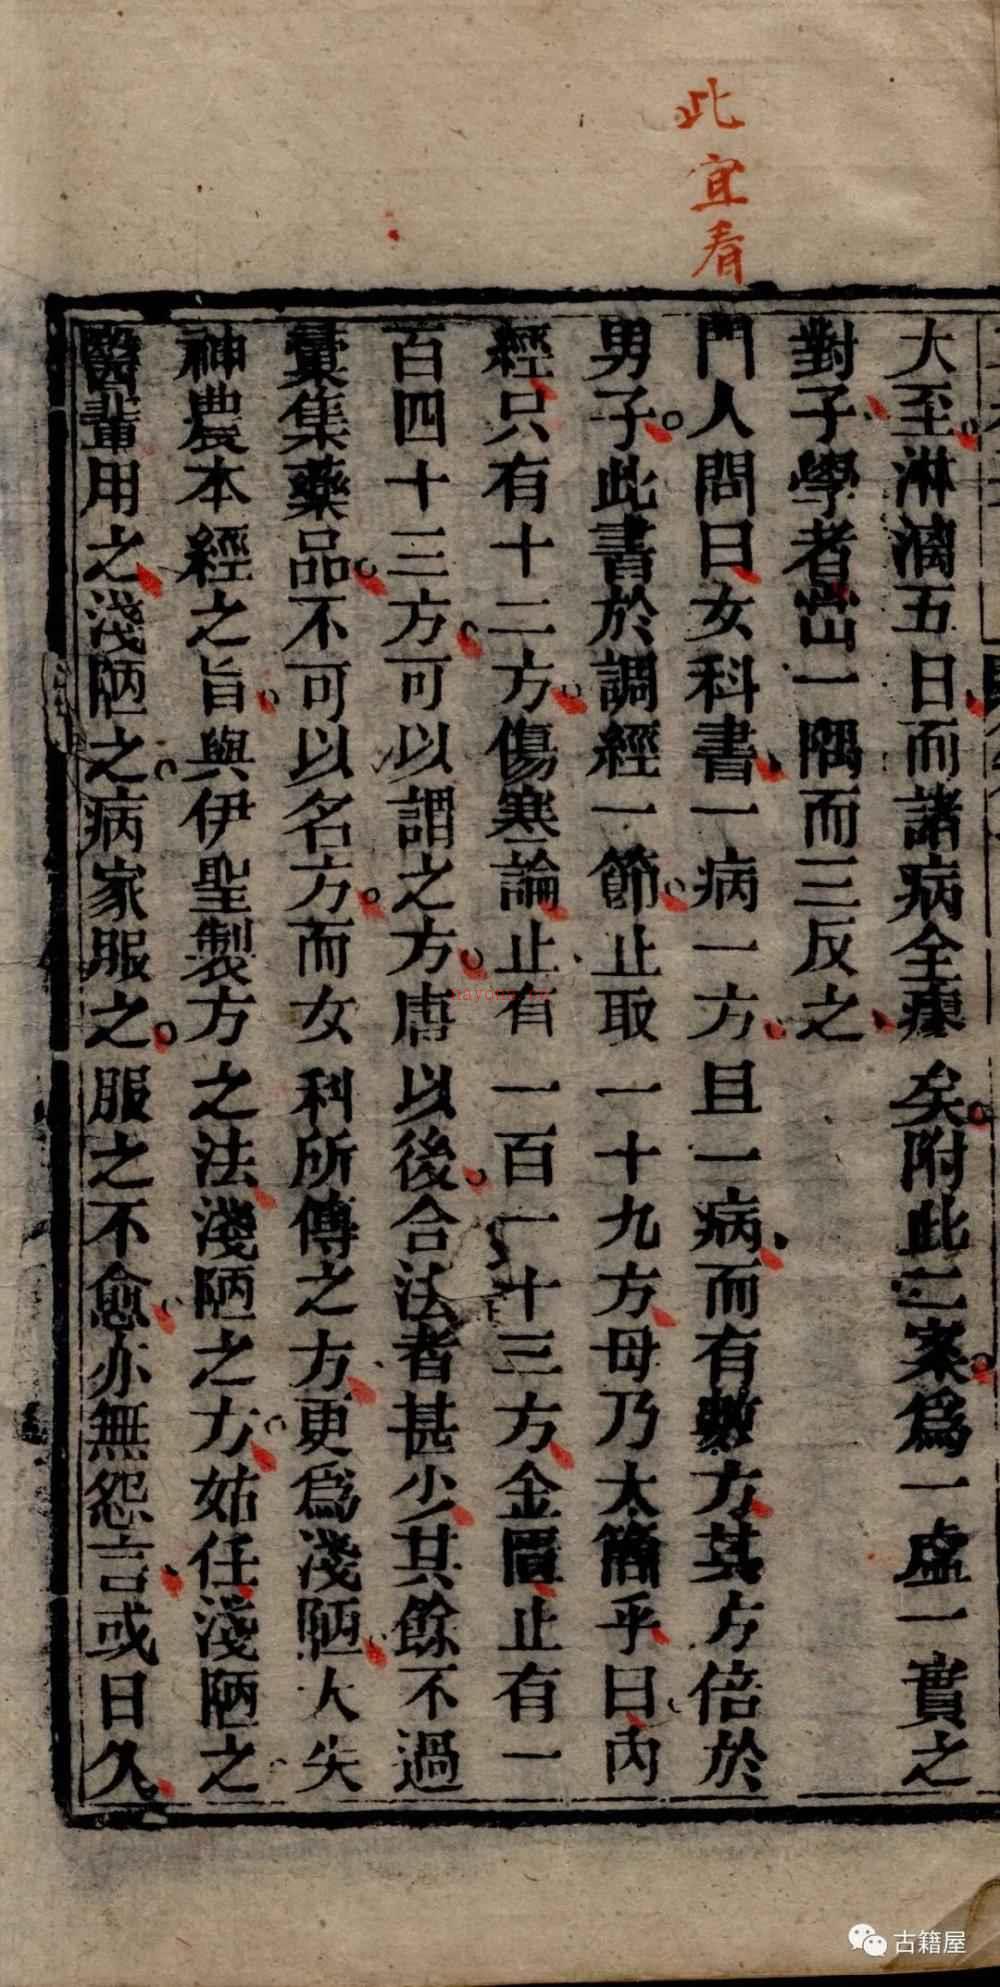 此宜看
大至淋漓五日而諸病全瘳矣附此二案爲一虛一實之
對子學者當一隅而三反之
門人問曰女科書一病一方且一病而有數方其方倍於
男子此書於調經一節止取一十九方毋乃太簡乎曰內
經只有十二方傷寒論止有一百一十三方金匱止有一
百四十三方可以謂之方唐以後合法者甚少其餘不過
彙集藥品不可以名方而女科所傳之方更爲淺陋大失
神農本經之旨與伊聖製方之法淺陋之方姑任淺陋之
醫輩用之淺陋之病家服之服之不愈亦無怨言或日久
古籍屋